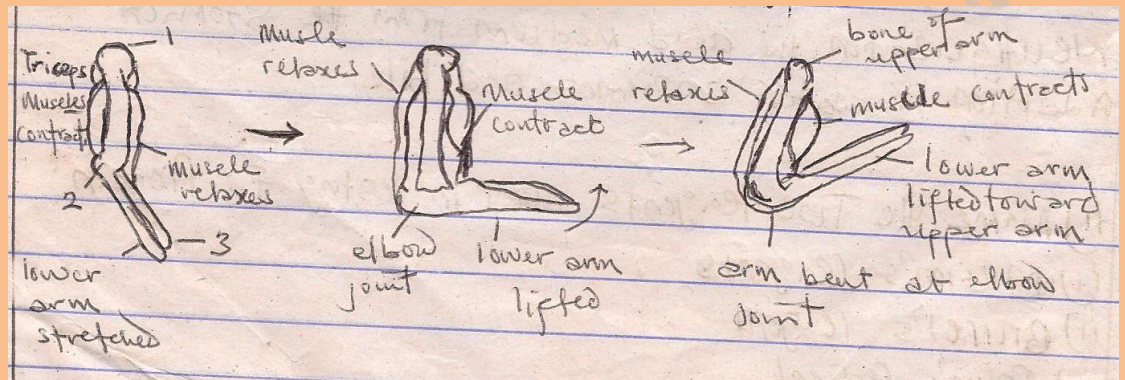 1
Triceps
Muscles
contract
muscle
relaxes
2
3
lower
arm
stretched
Muslе
relaxes
Muscle
contract
elbow
joint
lower arm
lifted
muscle
relaxes
bone of
upper arm
muscle contracts
lower arm
lifted toward
upper arm
arm bent at elbow
joint